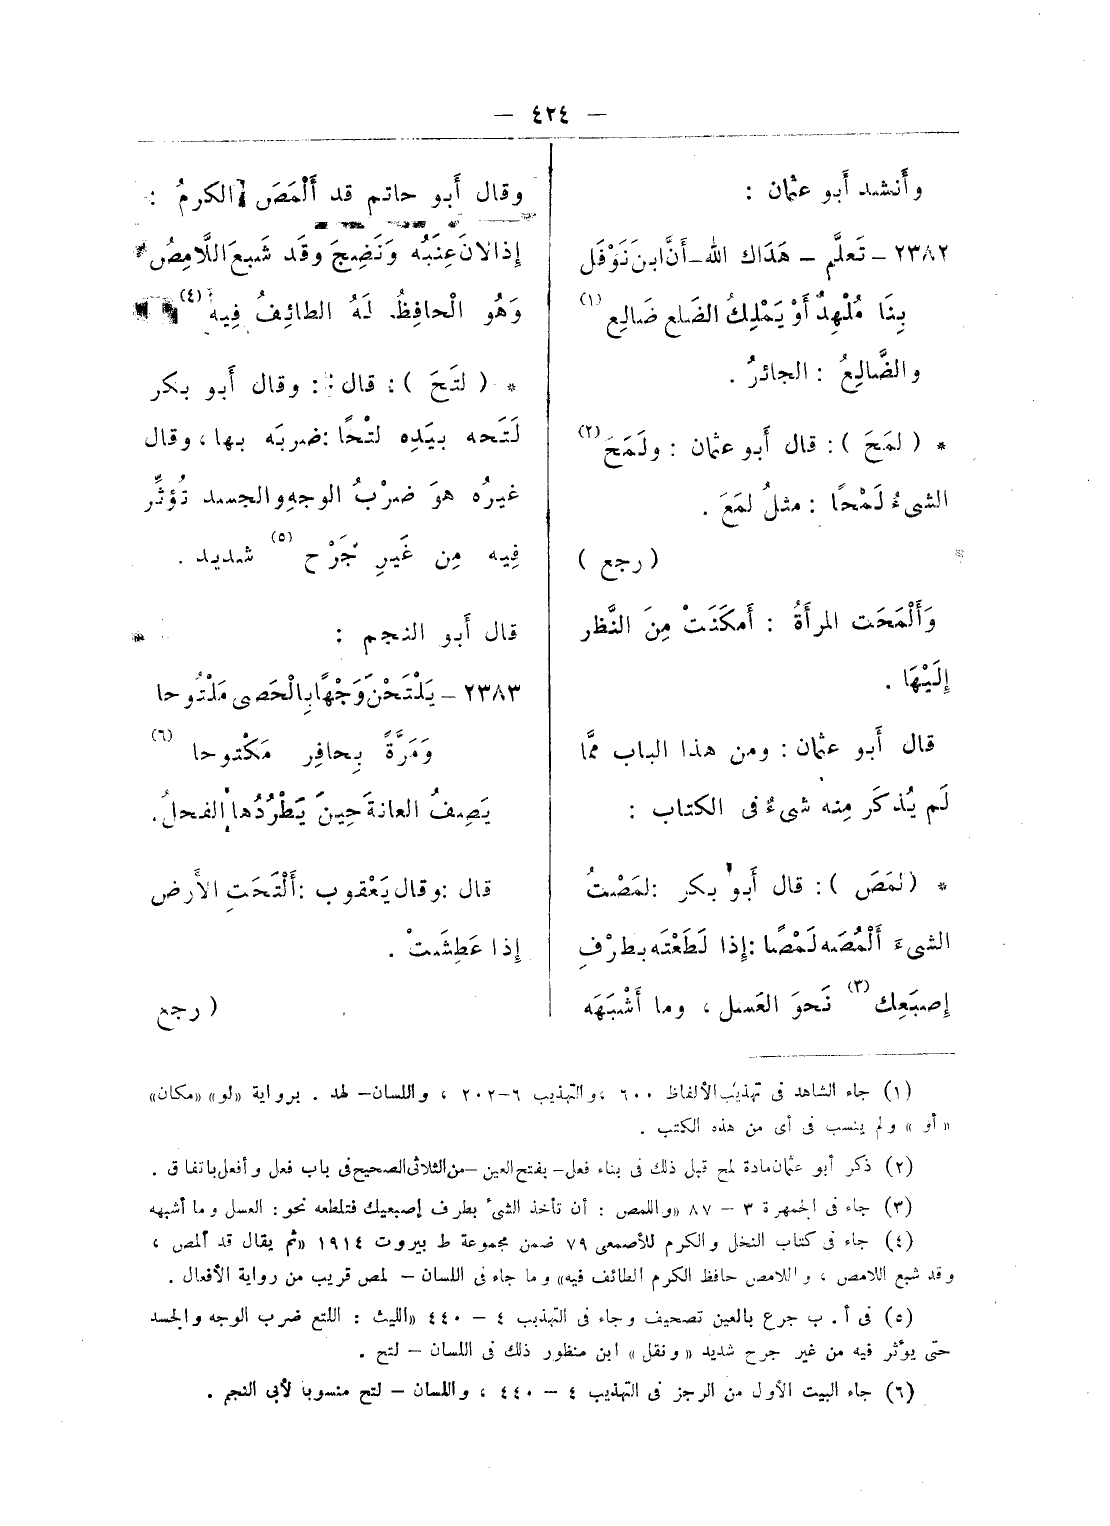 — ٤٢٤ —
وأَنشد أَبو عثمان :
٢٣٨٢ – تَعلَّم – هَدَاك الله – أَنَّ ابنَ نَوْفَل
بِنَا مُلْهِدٌ أَوْ يَمْلِكُ الضَلع ضَالِع (١)
والضَّالِعُ : الجائرُ .
* ( لمَحَ ) : قال أَبو عثمان : ولَمَحَ (٢)
الشىءُ لَمْحًا : مثلُ لمَعَ .
( رجع )
وَأَلْمَحَت المرأَةُ : أَمكَنَتْ مِنَ النَّظر
إِلَيْهَا .
قال أَبو عثمان : ومن هذا الباب ممَّا
لَم يُذكَر مِنه شىءٌ فى الكتاب :
* (لمَصَ ) : قال أَبو بكر : لمَصْتُ
الشىءَ أَلْمُصَه لَمْصًا : إِذا لَطَعْتَه بطرْفِ
إِصبَعِك (٣) نَحوَ العَسل ، وما أَشْبَهَه
وقال أَبو حاتم قد أَلْمَصَ الكرمُ :
إِذا لانَ عِنَبُه وَنَضِجَ وقَد شَبِعَ اللَّامِصُ
وَهُو الْحافِظُ لَهُ الطائِفُ فِيهِ (٤)
* ( لتَحَ ) : قال : وقال أَبو بكر
لَتَحه بيَدِه لتْحًا : ضربَه بها ، وقال
غيرُه هوَ ضرْبُ الوجهِ والجسد تُؤثِّر
فِيه مِن غَيرِ جَرْح (٥) شديد .
قال أَبو النجم :
٢٣٨٣ – يَلْتَحْنَ وَجْهًا بِالْحَصى مَلْتُوحا
وَمَرَّةً بِحافِر مَكْتوحا (٦)
يَصِفُ العانةَ حِينَ يَطْرُدُها الفحلُ .
قال : وقال يَعْقوب : أَلْتَحَتِ الأَرض
إِذا عَطِشَتْ .
( رجع
(١) جاء الشاهد فى تهذيب الألفاظ ٦٠٠ ، والتهذيب ٦–٢٠٢ ، واللسان – لهد . برواية «لو» «مكان»
«أو » ولم ينسب فى أى من هذه الكتب .
(٢) ذكر أبو عثمان مادة لمح قبل ذلك فى بناء فعل – بفتح العين – من الثلاثى الصحيح فى باب فعل وأفعل باتفاق .
(٣) جاء فى الجمهرة ٣ – ٨٧ «واللمص : أن تأخذ الشئ بطرف إصبعيك فتلطعه نحو : العسل وما أشبهه
(٤) جاء فى كتاب النخل والكرم للأصمعى ٧٩ ضمن مجموعة ط بيروت ١٩١٤ «ثم يقال قد ألمص ،
وقد شبع اللامص ، واللامص حافظ الكرم الطائف فيه» وما جاء فى اللسان – لمص قريب من رواية الأفعال .
(٥) فى أ . ب جرع بالعين تصحيف وجاء فى التهذيب ٤ – ٤٤٠ «الليث : اللتع ضرب الوجه والجسد
حتى يؤثر فيه من غير جرح شديد « ونقل » ابن منظور ذلك فى اللسان – لتح .
(٦) جاء البيت الأول من الرجز فى التهذيب ٤ – ٤٤٠ ، واللسان – لتح منسوبا لأبى النجم .